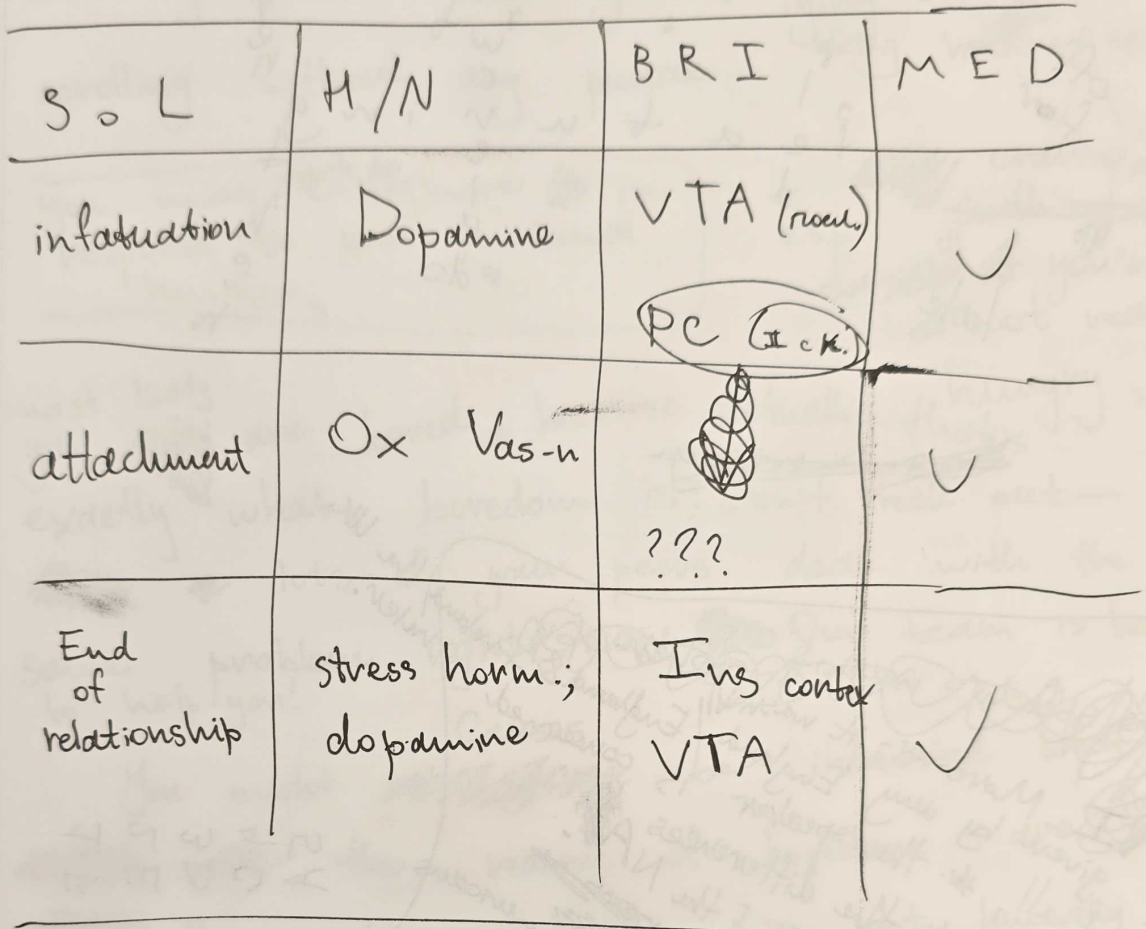 S. o L
H/N
BRI
MED
infatuation
Dopamine
VTA
PC
attachment
Ox Vas-n
???
End
of
relationship
stress horm.;
dopamine
Ins cortex
VTA